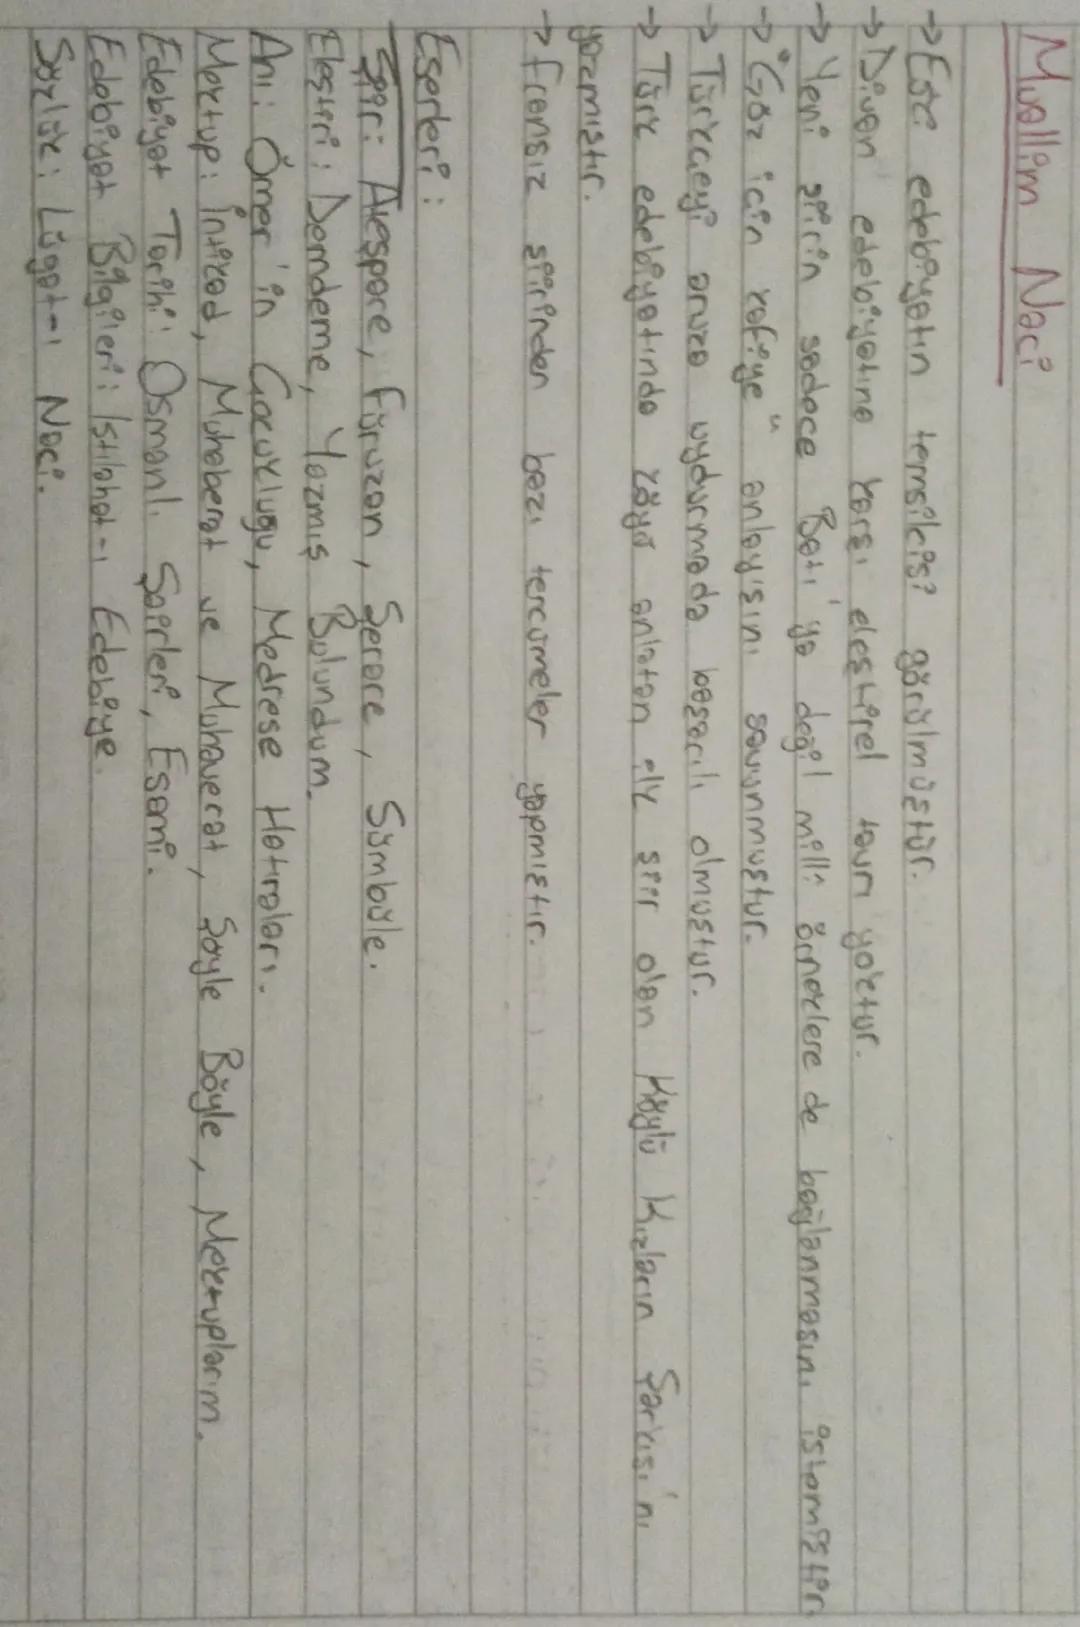 Muallim Naci
→ Eski edebiyatın temsilcisi görülmüştür.
→ Divan edebiyatına karşı eleştirel tavrı yoktur.
→ Yeni şiirin sadece Batı'ya değil milli örneklere de bağlanmasını istemiştir.
→ "Göz için kafiye" anlayışını savunmuştur.
→ Türkçeyi aruza uydurmada başarılı olmuştur.
→ Türk edebiyatında köyü anlatan ilk şiir olan Köylü Kızların Şarkısı'nı
yazmıştır.
→ Fransız şiirinden bazı tercümeler yapmıştır.
Eserleri:
Şiir: Ateşpare, Füruzan, Şerare, Sümbüle.
Eleştiri: Demdeme, Yazmış Bulundum.
Anı: Ömer'in Çocukluğu, Medrese Hatıraları.
Mektup: İntikad, Muhaberat ve Muhaverat, Şöyle Böyle, Mektuplarım.
Edebiyat Tarihi: Osmanlı Şairleri, Esami.
Edebiyat Bilgileri: Istılahat-ı Edebiye.
Sözlük: Lügat-ı Naci.